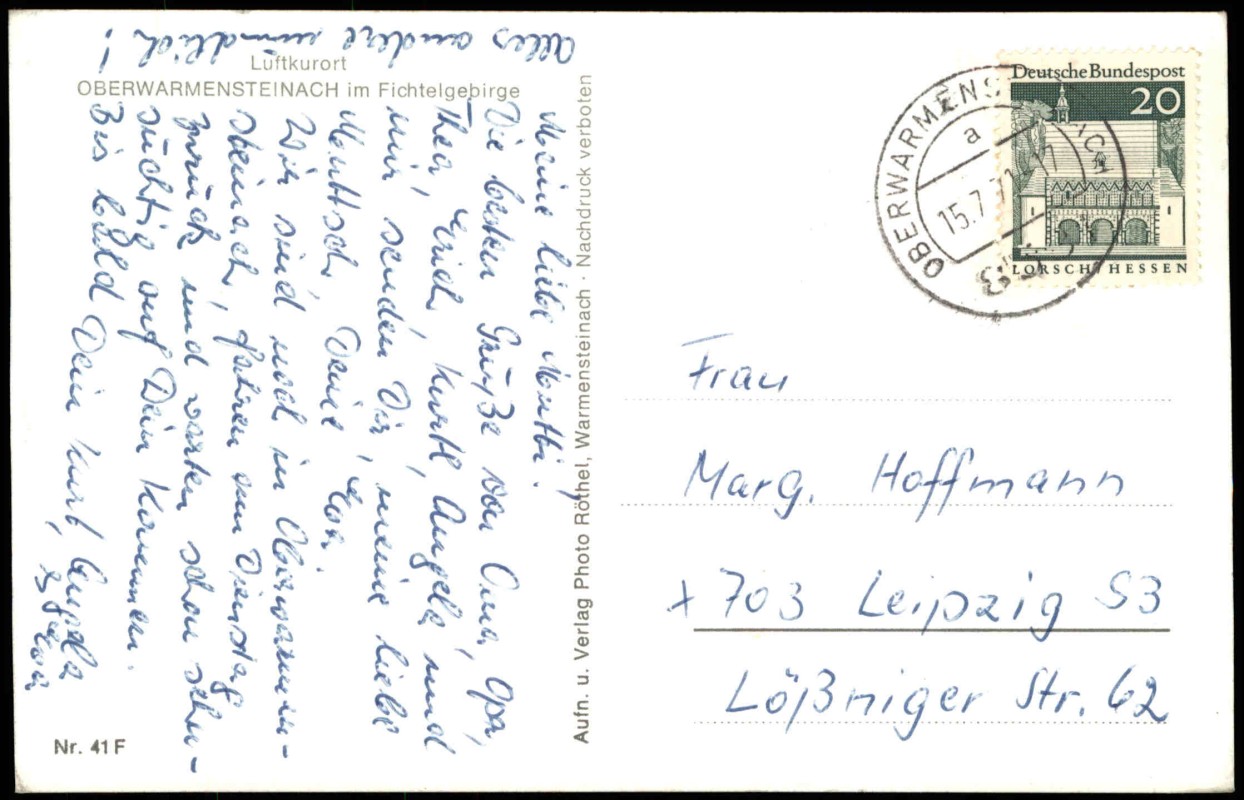 Luftkurort
OBERWARMENSTEINACH im Fichtelgebirge
Meine liebe Mutti!
Die besten Grüße von Oma, Opa,
Thea, Erich, Kurtl, Angela und
mir senden Dir, meine liebe
Deine Eva.
Wir sind noch in Oberwarmen-
steinach, fahren am Dienstag
zurück und warten schon sehn-
süchtig auf Dein Kommen.
Bis bald Dein Kurt, Angela
Eva
Alles andere mündlich!
Nr. 41 F
Aufn. u. Verlag Photo Röthel, Warmensteinach · Nachdruck verboten
Deutsche Bundespost
20
LORSCH/HESSEN
OBERWARMENS
a
15.7.71
Frau
Marg. Hoffmann
x 703 Leipzig S3
Lößniger Str. 62